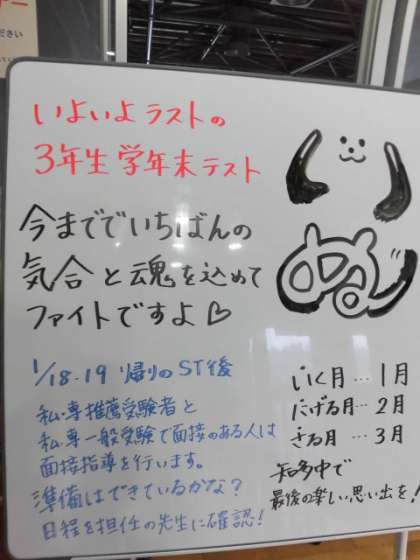 ださい
いよいよラストの
3年生学年末テスト
今まででいちばんの
気合と魂を込めて
ファイトですよ♡
1/18・19 帰りのST後
私・専推薦受験者と
私・専一般受験で面接のある人は
面接指導を行います。
準備はできているかな?
日程を担任の先生に確認!
いく月…1月
にげる月…2月
さる月…3月
知多中で
最後の楽しい思い出を!